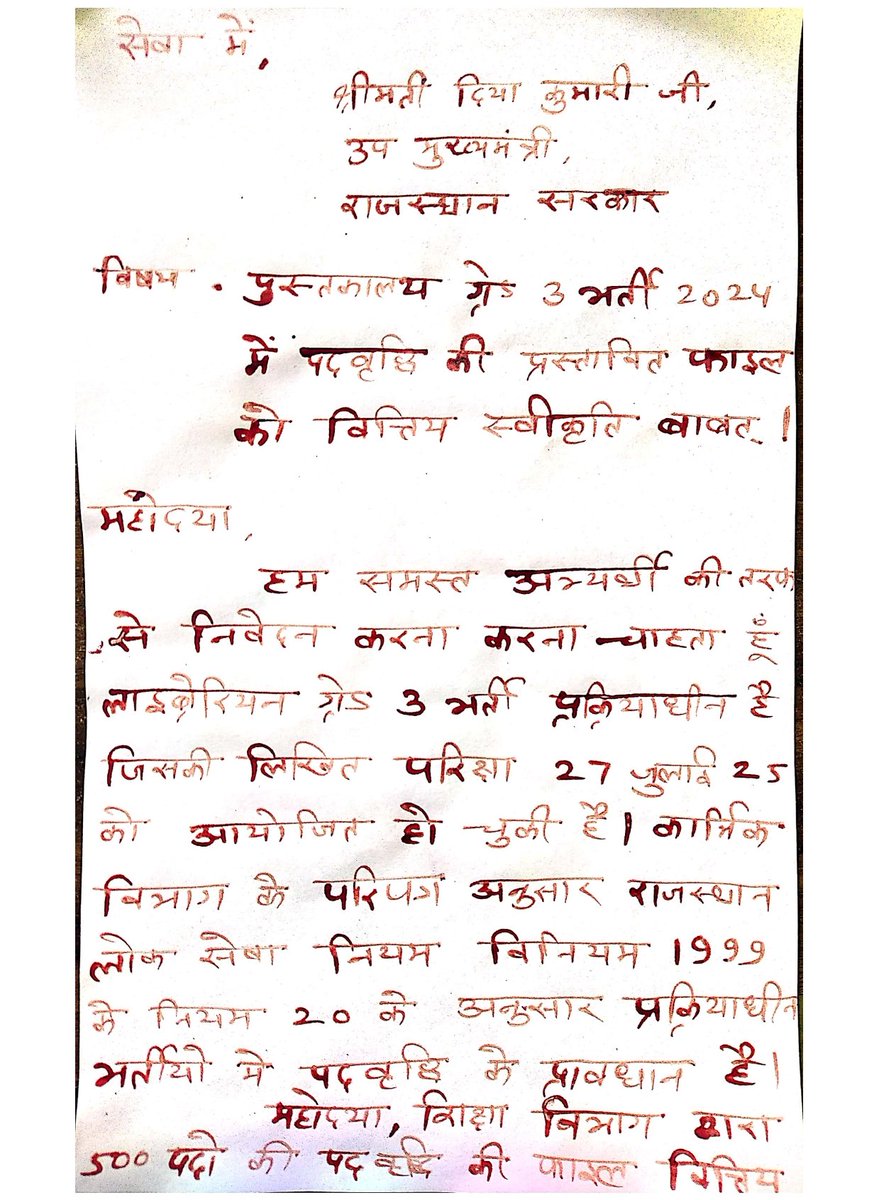 सेवा में,
श्रीमती दिया कुमारी जी,
उप मुख्यमंत्री,
राजस्थान सरकार
विषय . पुस्तकालय ग्रेड 3 भर्ती 2024
में पदवृद्धि की प्रस्तावित फाइल
को वित्तिय स्वीकृति बाबत् ।
महोदया,
हम समस्त अभ्यर्थी की तरफ
से निवेदन करना करना चाहता हूँ
लाइब्रेरियन ग्रेड 3 भर्ती प्रक्रियाधीन है
जिसकी लिखित परिक्षा 27 जुलाई 25
को आयोजित हो चुकी है। कार्मिक
विभाग के परिपग अनुसार राजस्थान
लोक सेवा नियम विनियम 1999
के नियम 20 के अनुसार प्रक्रियाधीन
भर्तीयो मे पदवृद्धि के प्रावधान है।
महोदया, शिक्षा विभाग द्वारा
500 पदो की पद वृद्धि की फाइल वित्तिय